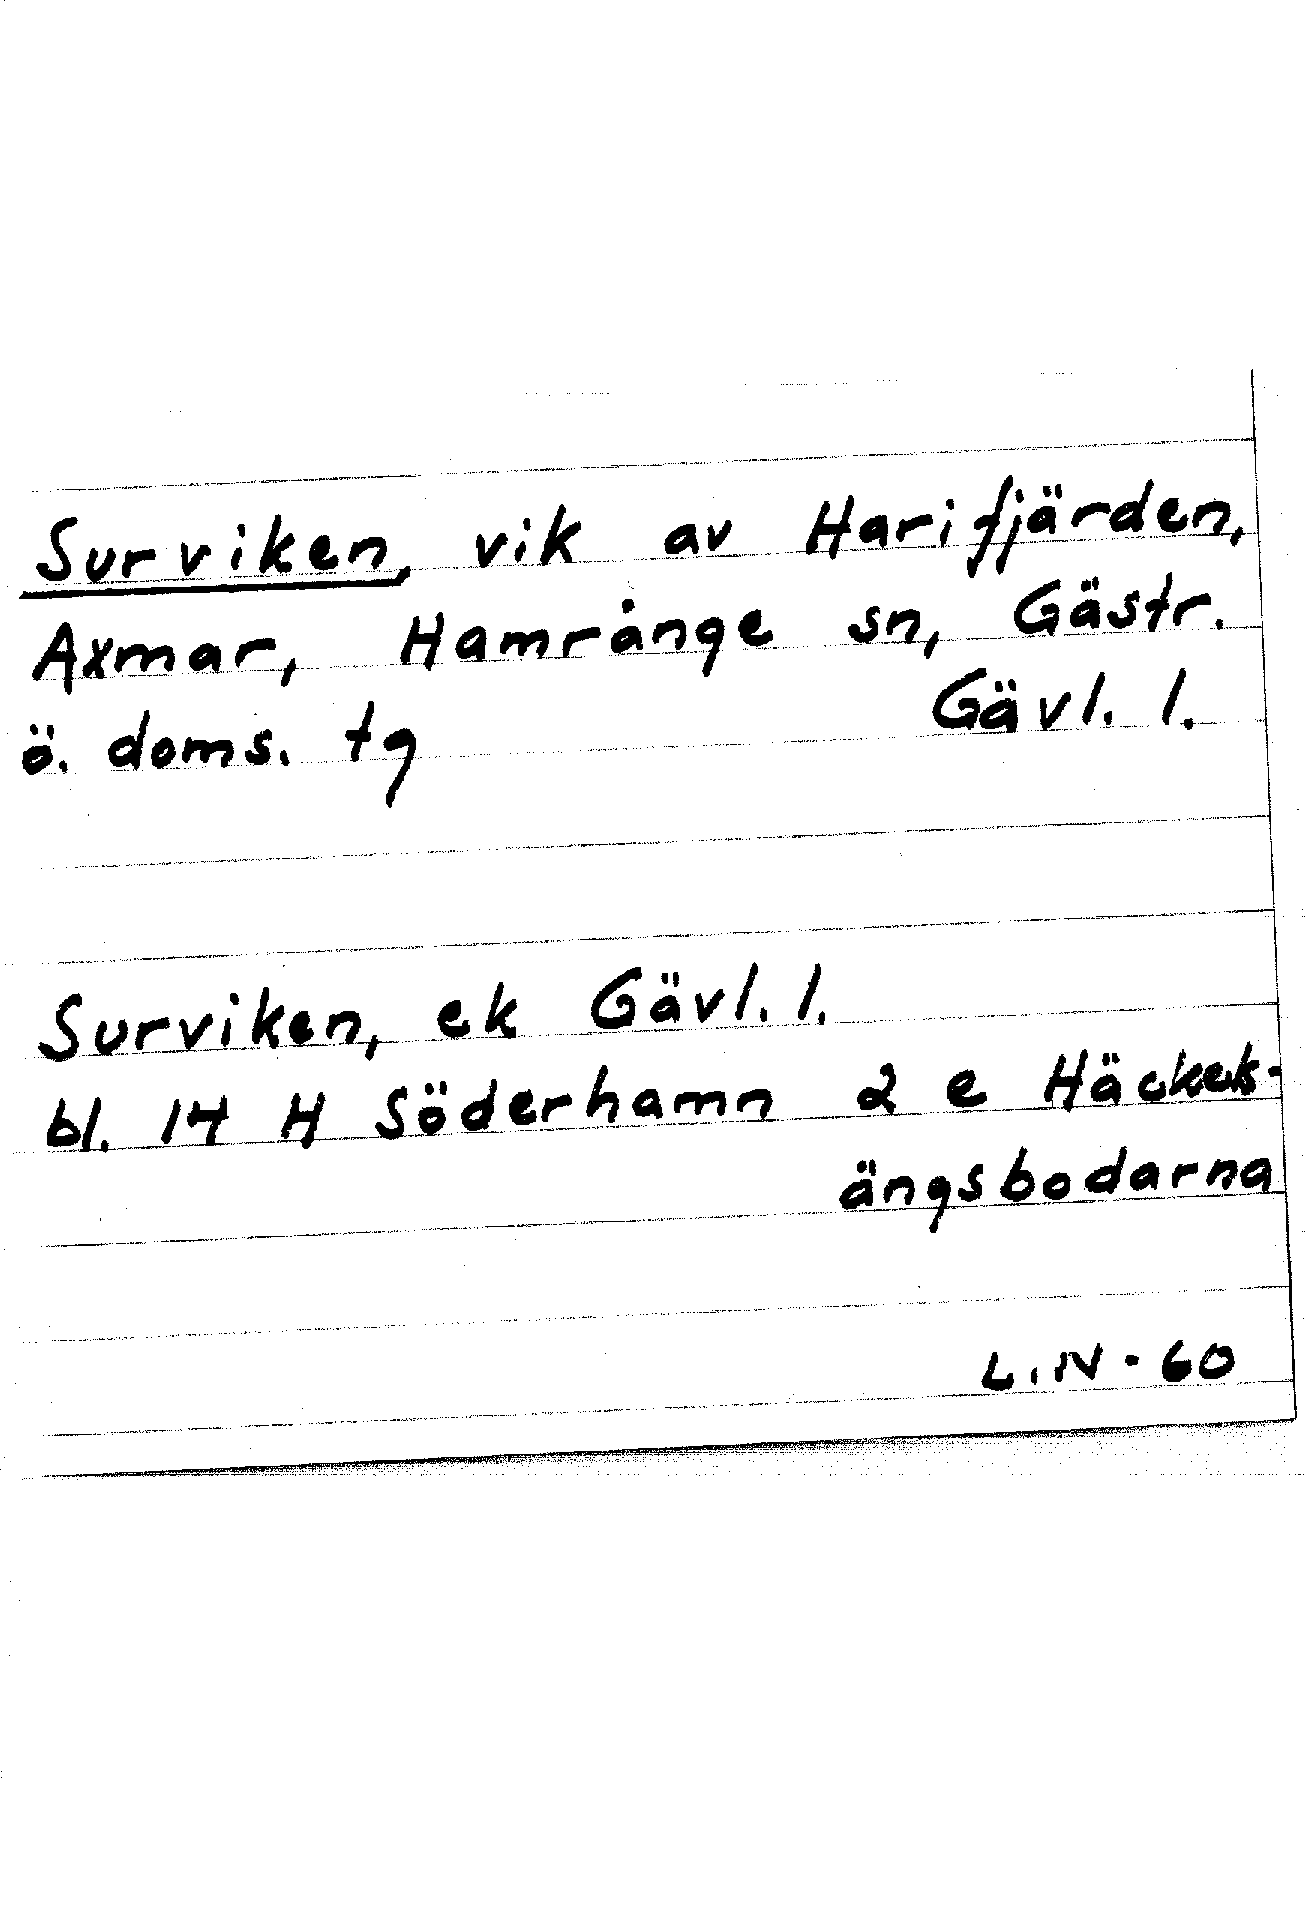 Surviken, vik av Harifjärden,
Axmar, Hamrånge sn, Gästr.
ö. doms. tg Gävl. l.
Surviken, ek Gävl. l.
bl. 14 H Söderhamn 2 e Häckels-
ängsbodarna
L.N - 60